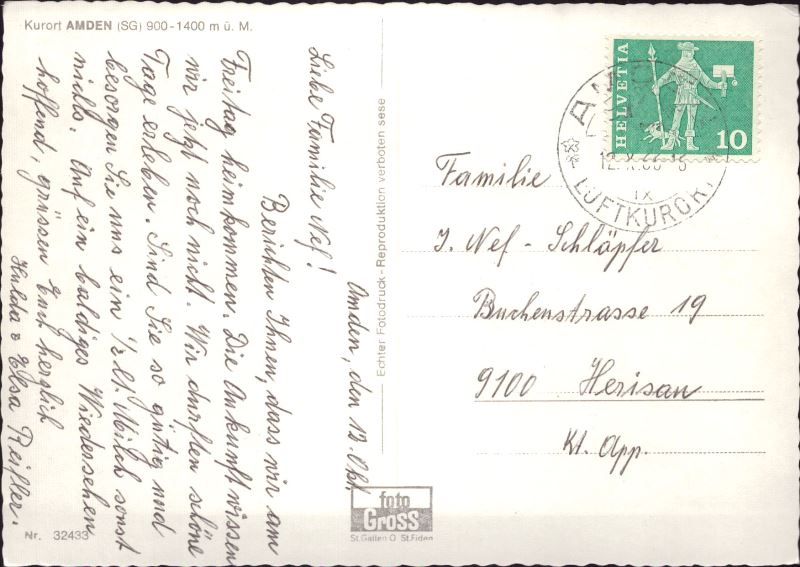 Kurort AMDEN (SG) 900-1400 m ü. M.
Amden, den 12. Okt.
Liebe Familie Nef!
Berichten Ihnen, dass wir am
Freitag heimkommen. Die Ankunft wissen
wir jetzt noch nicht. Wir durften schöne
Tage erleben. Sind Sie so gütig und
besorgen Sie uns ein ½ lt. Milch sonst
nichts. Auf ein baldiges Wiedersehen
hoffend, grüssen Euch herzlich
Hulda & Elsa Reifler.
Nr. 32433
Echter Fotodruck - Reproduktion verboten sese
foto
GROSS
St.Gallen O St.Fiden
HELVETIA
10
LUFTKURORT
IX
Familie
J. Nef-Schläpfer
Buchenstrasse 19
9100 Herisau
Kt. App.